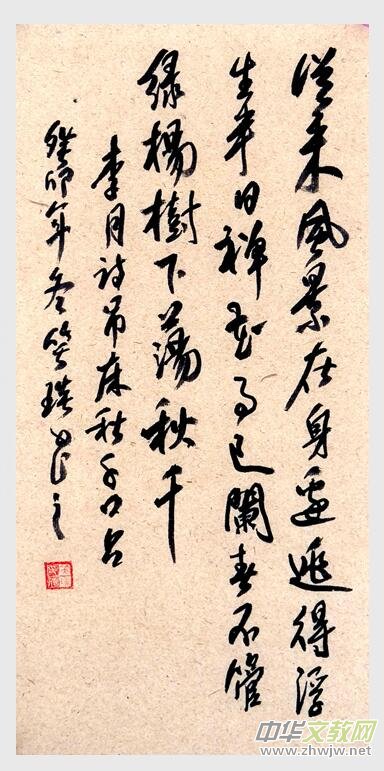 從来風景在身邊逃得浮
生半日禅花事已闌春不管
绿楊樹下蕩秋千
李月詩吊床秋千口占
癸卯年冬
中华文教网
www.zhwjw.net